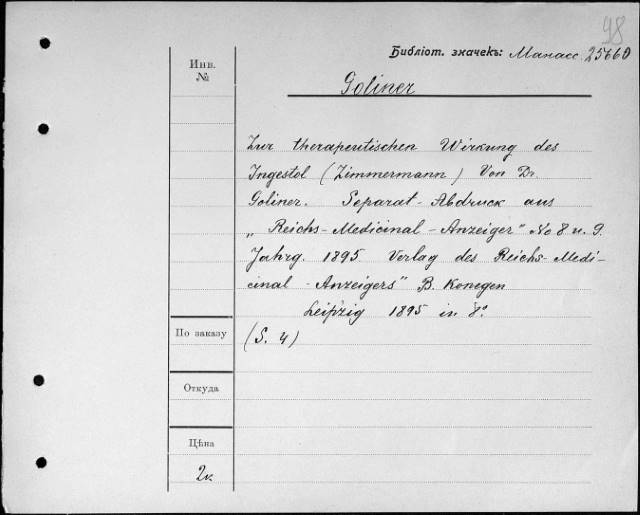 98
Библіот. значекъ: Манасс. 25660
Инв.
№
Goliner
Zur therapeutischen Wirkung des
Ingestol (Zimmermann) Von Dr.
Goliner. Separat-Abdruck aus
„Reichs-Medicinal-Anzeiger" No 8 u. 9.
Jahrg. 1895 Verlag des Reichs-Medi-
cinal-Anzeigers" B. Konegen
Leipzig 1895 in 8°.
По заказу
(S. 4)
Откуда
Цѣна
2к